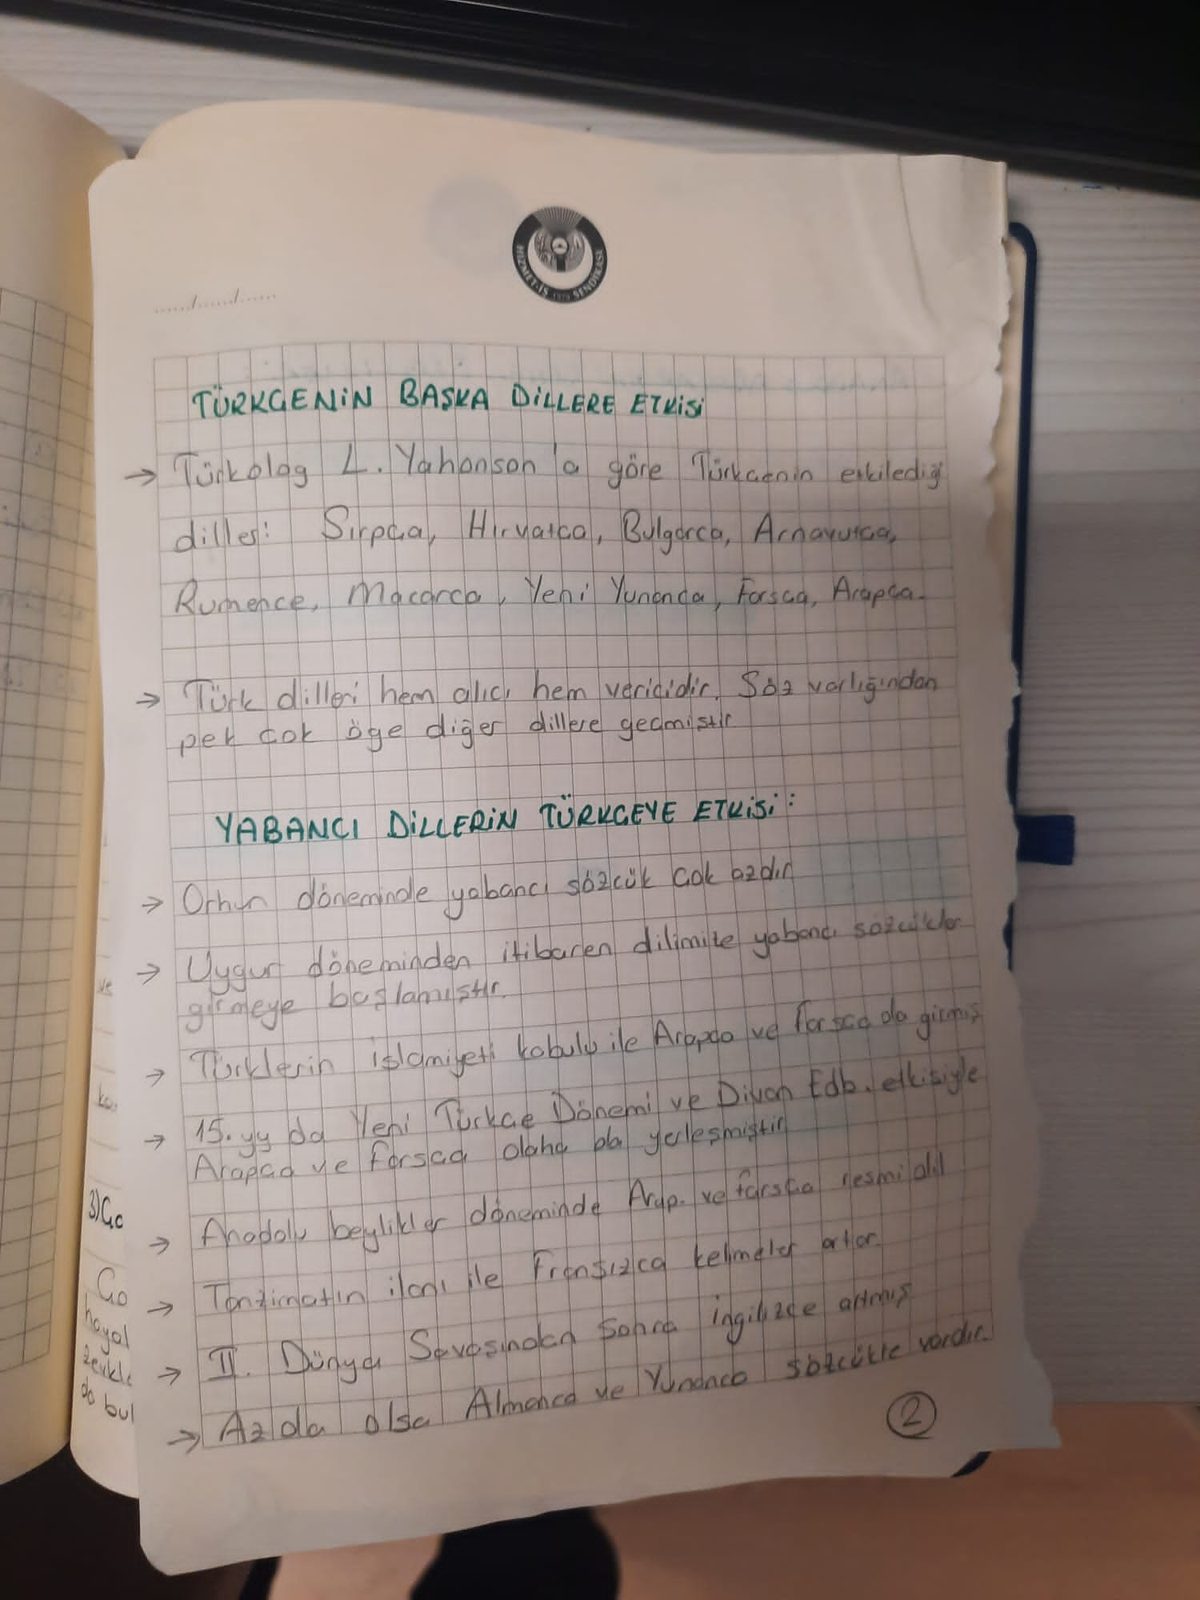 ....../....../......
HİZMET-İŞ SENDİKASI
TÜRKÇENİN BAŞKA DİLLERE ETKİSİ
→ Türkolog L. Yahonson'a göre Türkçenin etkilediği
diller: Sırpça, Hırvatça, Bulgarca, Arnavutça,
Rumence, Macarca, Yeni Yunanca, Farsça, Arapça.
→ Türk dilleri hem alıcı hem vericidir. Söz varlığından
pek çok öge diğer dillere geçmiştir
YABANCI DİLLERİN TÜRKÇEYE ETKİSİ:
→ Orhun döneminde yabancı sözcük çok azdır
→ Uygur döneminden itibaren dilimize yabancı sözcükler
girmeye başlamıştır.
→ Türklerin islamiyeti kabulu ile Arapça ve Farsça da girmiş
→ 15. yy da Yeni Türkçe Dönemi ve Divan Edb. etkisiyle
Arapça ve Farsça daha da yerleşmiştir
→ Anadolu beylikler döneminde Arap. ve farsça resmi dil
→ Tanzimatın ilanı ile Fransızca kelimeler artar.
→ II. Dünya Savaşından sonra ingilizce artmış
→ Az da olsa Almanca ve Yunanca sözcükte vardır.
2
ve
3)
hayal
zevkle
da bul